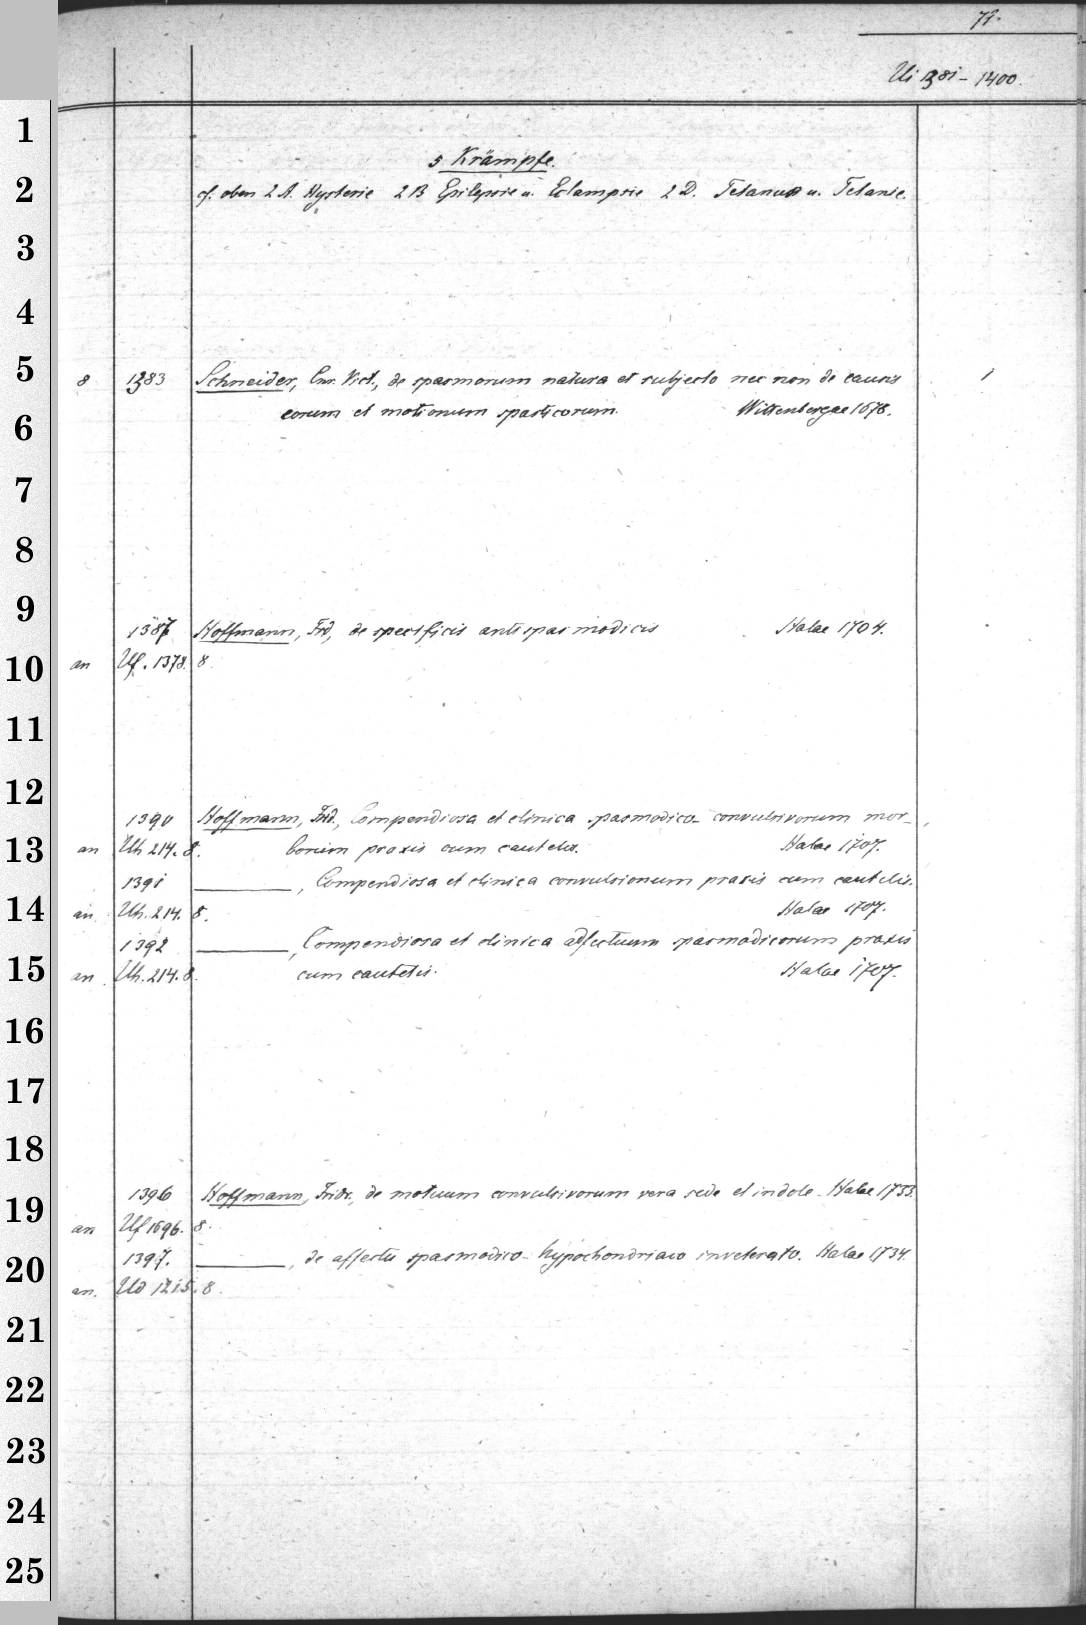 71.
Ui 1381 – 1400.
5 Krämpfe.
cf. oben 2 A. Hysterie 2 B Epilepsie u. Eclampsie 2 D. Tetanus u. Tetanie.
8 1383 Schneider, Conr. Vict., de spasmorum natura et subjecto nec non de causis 1
eorum et motionum spasticorum. Wittenbergae 1678.
1387 Hoffmann, Frd., de specificis antispasmodicis Halae 1704.
an Uf. 1378. 8.
1390 Hoffmann, Frd., Compendiosa et clinica spasmodico-convulsivorum mor-
an Uh 214. 8. borum praxis cum cautelis. Halae 1707.
1391 ———, Compendiosa et clinica convulsionum praxis cum cautelis.
an Uh. 214. 8. Halae 1707.
1392 ———, Compendiosa et clinica adfectuum spasmodicorum praxis
an Uh. 214. 8. cum cautelis. Halae 1707.
1396 Hoffmann, Fridr., de motuum convulsivorum vera sede et indole. Halae 1733.
an Uf 1696. 8.
1397. ———, de affectu spasmodico-hypochondriaco inveterato. Halae 1734.
an. Ud 1215. 8.
1
2
3
4
5
6
7
8
9
10
11
12
13
14
15
16
17
18
19
20
21
22
23
24
25